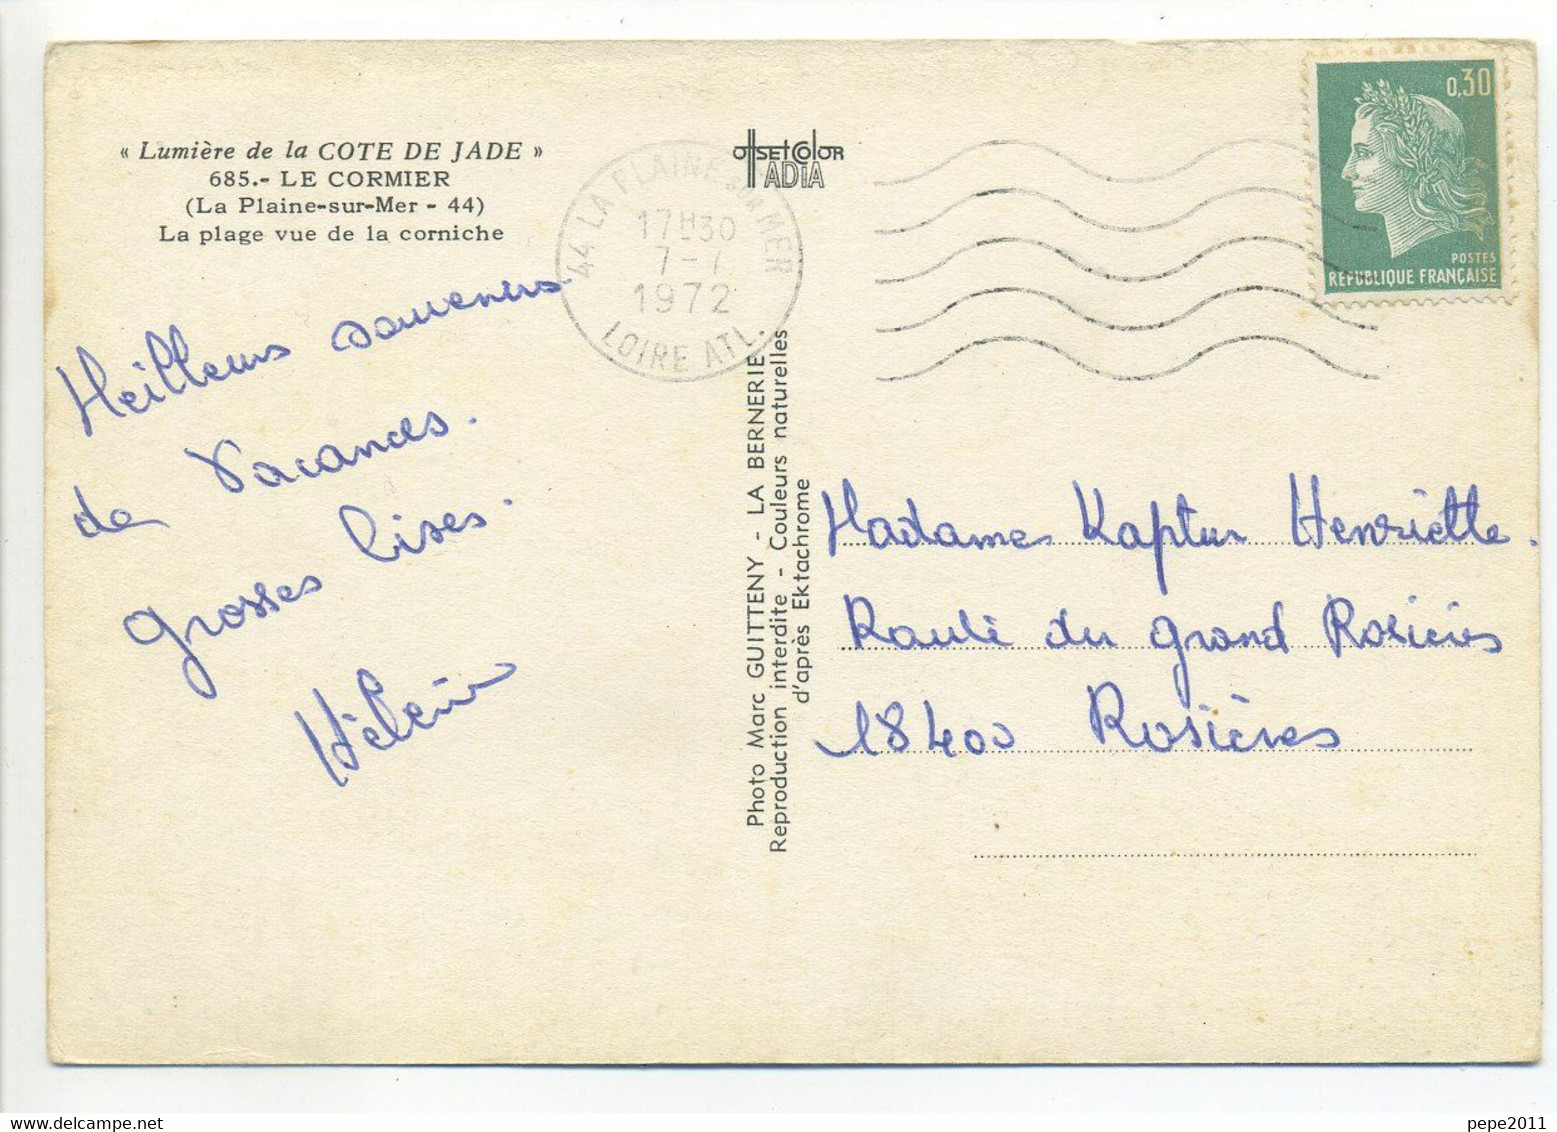 « Lumière de la COTE DE JADE »
685.- LE CORMIER
(La Plaine-sur-Mer - 44)
La plage vue de la corniche
OFFSETCOLOR
ADIA
44 LA PLAINE SUR MER
17H30
7-7
1972
LOIRE ATL.
0,30
POSTES
REPUBLIQUE FRANÇAISE
Meilleurs souvenirs
de Vacances.
grosses bises.
Photo Marc GUITTENY - LA BERNERIE
Reproduction interdite - Couleurs naturelles
d'après Ektachrome
Madame Kaptur Henriette.
Route du grand Rosières
18400 Rosières
pepe2011